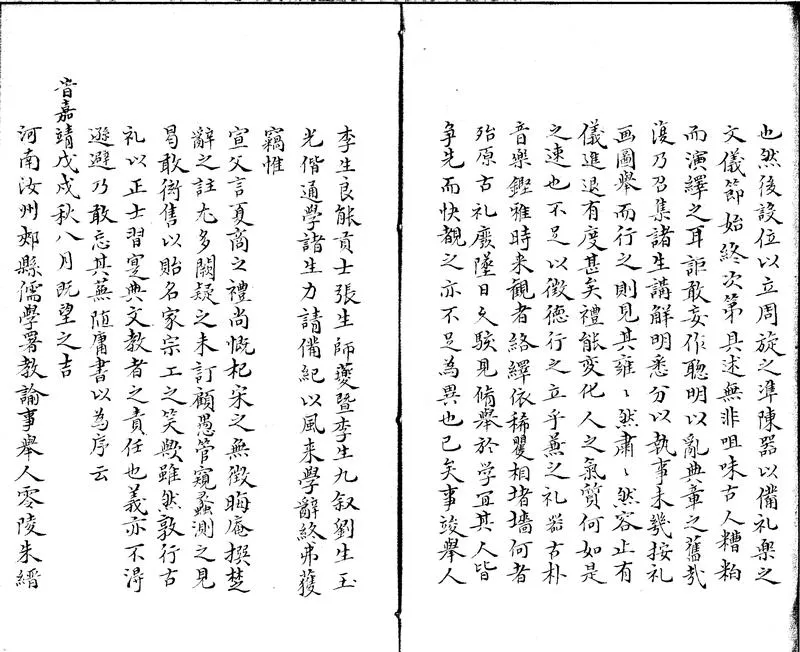 也然後設位以立周旋之準陳器以備礼楽之
文儀節始終次第具述無非咀味古人糟粕
而演繹之耳詎敢妄作聰明以亂典章之舊哉
復乃召集諸生講解明悉分以執事未幾按礼
画圖舉而行之則見其雍〻然肅〻然容止有
儀進退有度甚矣禮能変化人之氣質何如是
之速也不足以徴德行之立乎蕪之礼器古朴
音樂鏗稚時来觀者絡繹依稀矍相堵墻何者
殆原古礼廢墜日久駭見脩舉於学冝其人皆
争先而快覩之亦不足為異也已矣事竣舉人
李生良能貢士張生師夔暨李生九叙劉生玉
光偕通學諸生力請備紀以風来學辭終弗獲
竊惟
宣父言夏商之禮尚慨杞宋之無徴晦庵撰楚
辭之註尤多闕疑之未訂顧愚管窺蠡測之見
曷敢衒售以貽名家宗工之笑歟雖然敦行古
礼以正士習寔典文教者之責任也義亦不得
遜避乃敢忘其蕪陋庸書以為序云
旹嘉靖戊戌秋八月既望之吉
河南汝州郟縣儒學署教諭事舉人零陵朱縉